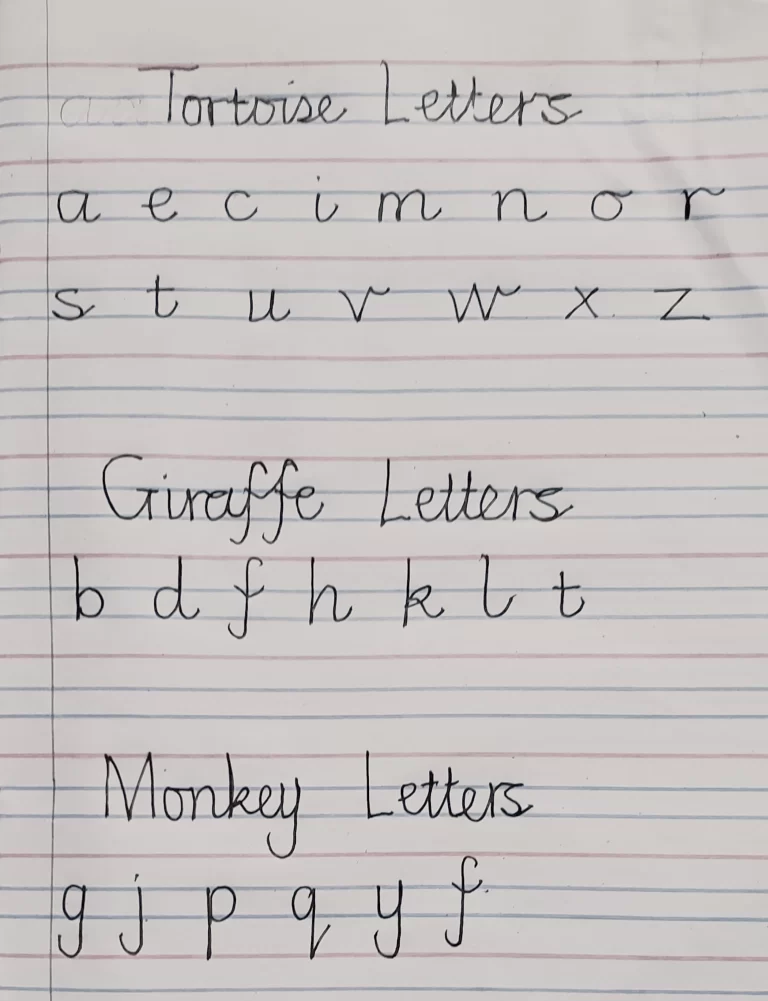 Tortoise Letters
a e c i m n o r
s t u v w x z
Giraffe Letters
b d f h k l t
Monkey Letters
g j p q y f